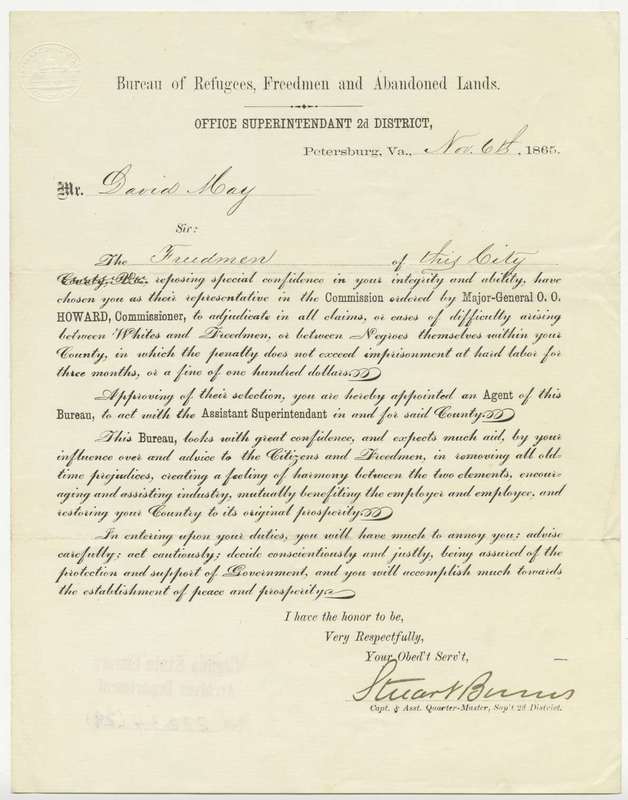 Bureau of Refugees, Freedmen and Abandoned Lands.
OFFICE SUPERINTENDANT 2d DISTRICT,
Petersburg, Va., Nov. 6th, 1865.
Mr. David May
Sir:
The Freedmen of this City
County, Va. reposing special confidence in your integrity and ability, have
chosen you as their representative in the Commission ordered by Major-General O. O.
HOWARD, Commissioner, to adjudicate in all claims, or cases of difficulty arising
between Whites and Freedmen, or between Negroes themselves within your
County, in which the penalty does not exceed imprisonment at hard labor for
three months, or a fine of one hundred dollars.
Approving of their selection, you are hereby appointed an Agent of this
Bureau, to act with the Assistant Superintendant in and for said County.
This Bureau, looks with great confidence, and expects much aid, by your
influence over and advice to the Citizens and Freedmen, in removing all old-
time prejudices, creating a feeling of harmony between the two elements, encour-
aging and assisting industry, mutually benefiting the employer and employee, and
restoring your Country to its original prosperity.
In entering upon your duties, you will have much to annoy you; advise
carefully; act cautiously; decide conscientiously and justly, being assured of the
protection and support of Government, and you will accomplish much towards
the establishment of peace and prosperity.
I have the honor to be,
Very Respectfully,
Your Obed't Serv't,
Stuart Barnes
Capt. & Asst. Quarter-Master, Sup't 2d District.